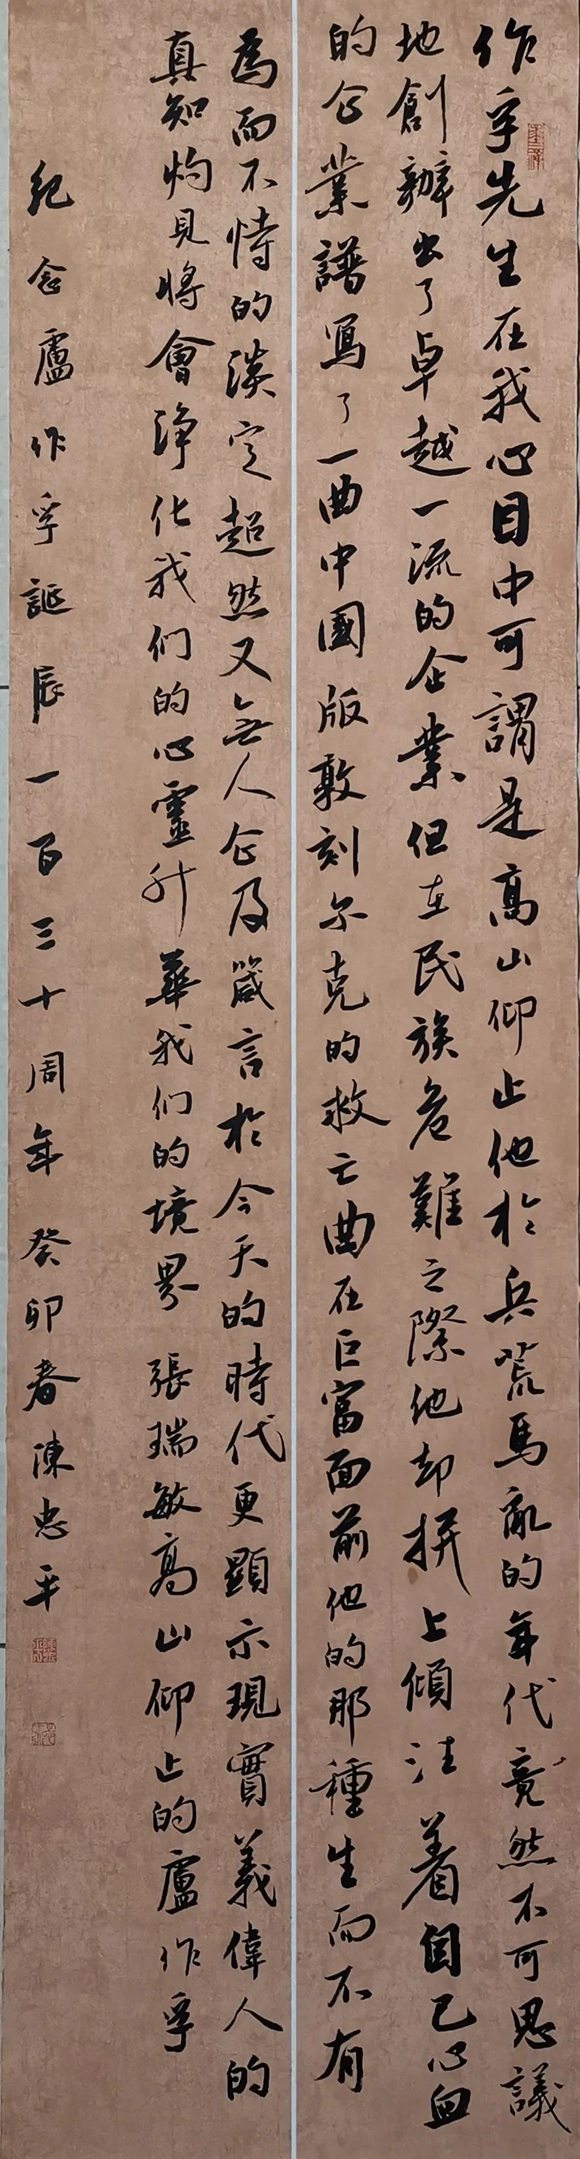 作孚先生在我心目中可謂是高山仰止他於兵荒馬亂的年代竟然不可思議
地創辦出了卓越一流的企業但在民族危難之際他却拼上傾注着自己心血
的企業譜寫了一曲中國版敦刻尔克的救亡曲在巨富面前他的那種生而不有
為而不恃的淡定超然又無人企及箴言於今天的時代更顯示現實義偉人的
真知灼見將會淨化我们的心靈升華我们的境界 張瑞敏高山仰止的盧作孚
紀念盧作孚誕辰一百三十周年 癸卯春陳忠平